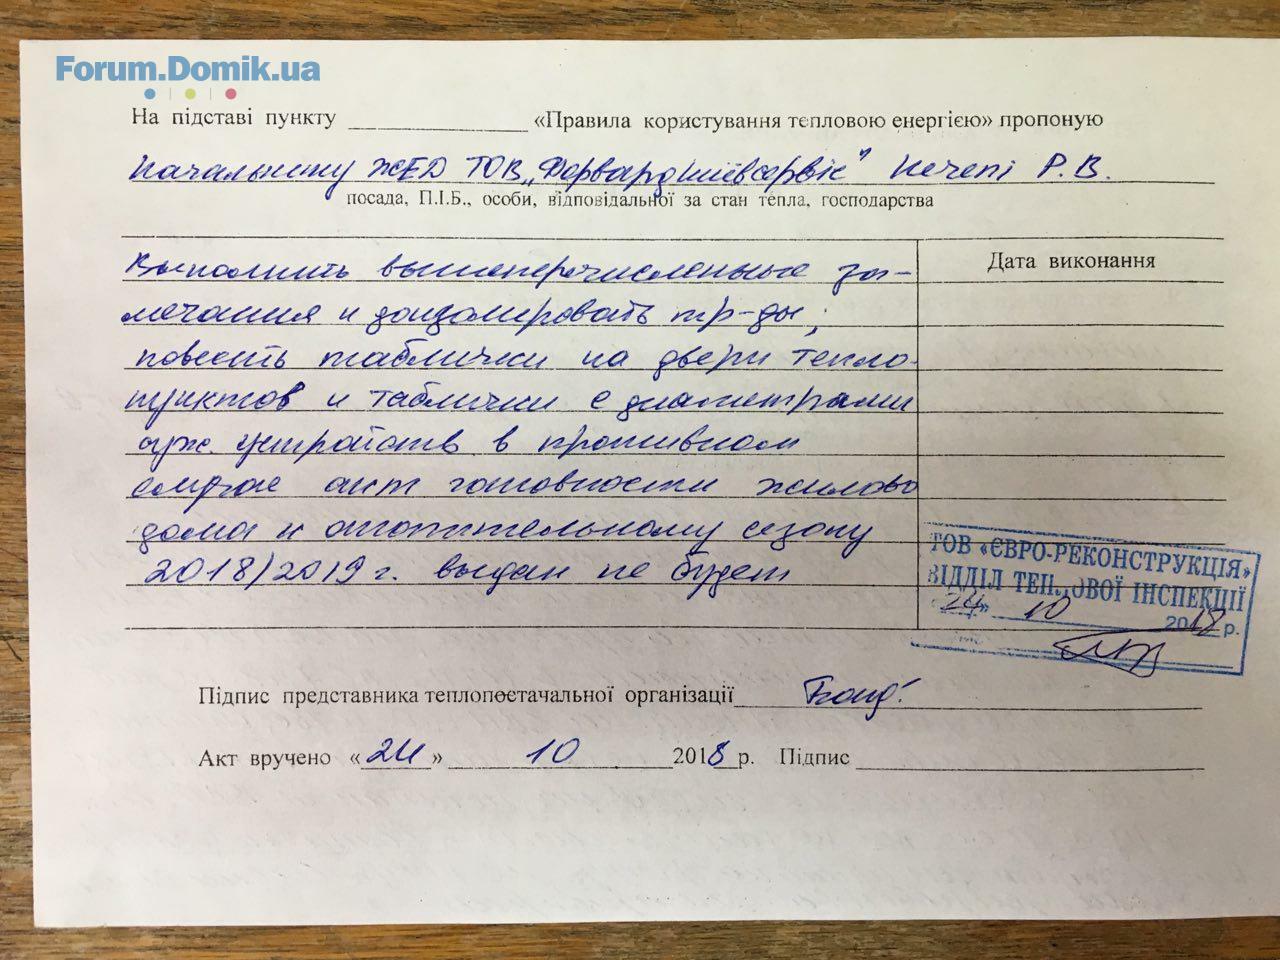 Forum.Domik.ua
На підставі пункту ____________ «Правила користування тепловою енергією» пропоную
Начальнику ЖЕД ТОВ „Форвардкиївсервіс" Нечепі Р.В.
посада, П.І.Б., особи, відповідальної за стан тепла, господарства
Дата виконання
Выполнить вышеперечисленные за-
мечания и доизолировать тр-ды;
повесить таблички на двери тепло-
пунктов и таблички с диаметрами
суж. устройств в противном
случае акт готовности жилово
дома к отопительному сезону
2018/2019 г. выдан не будет
ТОВ «ЄВРО-РЕКОНСТРУКЦІЯ»
ВІДДІЛ ТЕПЛОВОЇ ІНСПЕКЦІЇ
«24» 10 2018 р.
Підпис представника теплопостачальної організації
Акт вручено «24» 10 2018 р. Підпис